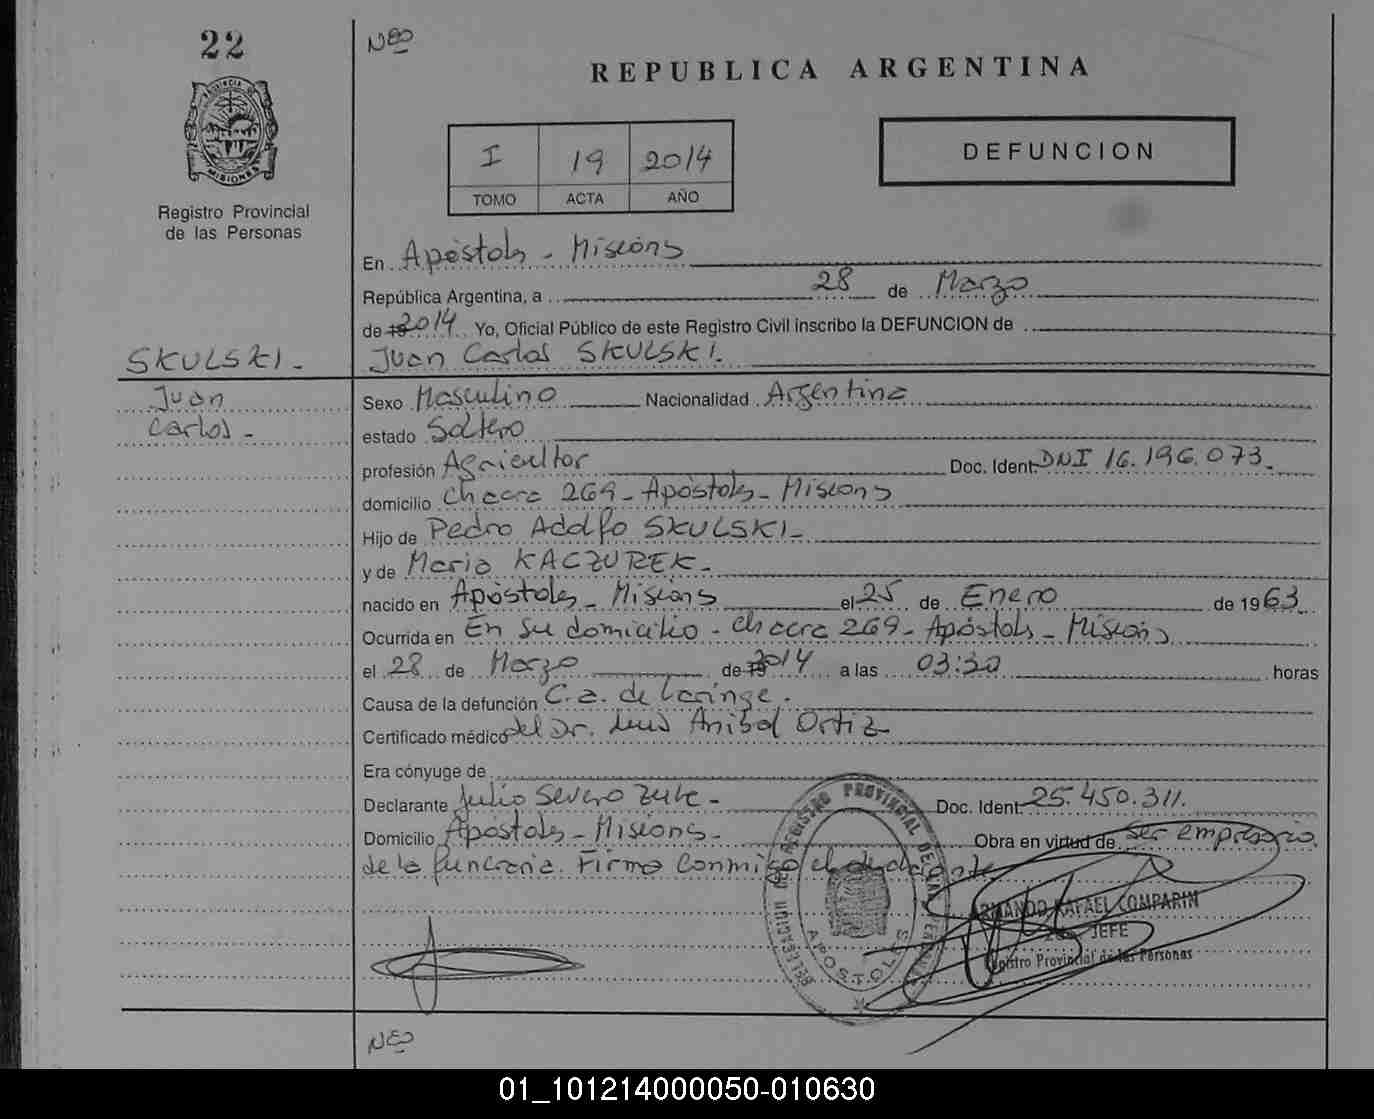 22
REPUBLICA ARGENTINA
PROVINCIA DE
MISIONES
Registro Provincial
de las Personas
I 19 2014
TOMO ACTA AÑO
DEFUNCION
En Apóstoles - Misiones
República Argentina, a 28 de Marzo
de 19 2014 Yo, Oficial Público de este Registro Civil inscribo la DEFUNCION de
SKULSKI.- Juan Carlos SKULSKI.
Juan
Carlos.-
Sexo Masculino Nacionalidad Argentina
estado Soltero
profesión Agricultor Doc. Ident. DNI 16.196.073.
domicilio Chacra 269 - Apóstoles - Misiones
Hijo de Pedro Adolfo SKULSKI.-
y de Maria KACZUREK.-
nacido en Apóstoles - Misiones el 25 de Enero de 1963.
Ocurrida en En su domicilio - Chacra 269 - Apóstoles - Misiones
el 28 de Marzo de 19 2014 a las 03:30 horas
Causa de la defunción C.a. de Laringe.
Certificado médico del Dr. Luis Anibal Ortiz
Era cónyuge de
Declarante Julio Severo Doc. Ident. 25.450.311.
Domicilio Apóstoles - Misiones.- Obra en virtud de ser empresario
de la funeraria. Firma conmigo el declarante
DELEGACION DEL REGISTRO PROVINCIAL DE LAS PERSONAS
APOSTOLES
ARMANDO RAFAEL COMPARIN
JEFE
Registro Provincial de las Personas
01_101214000050-010630